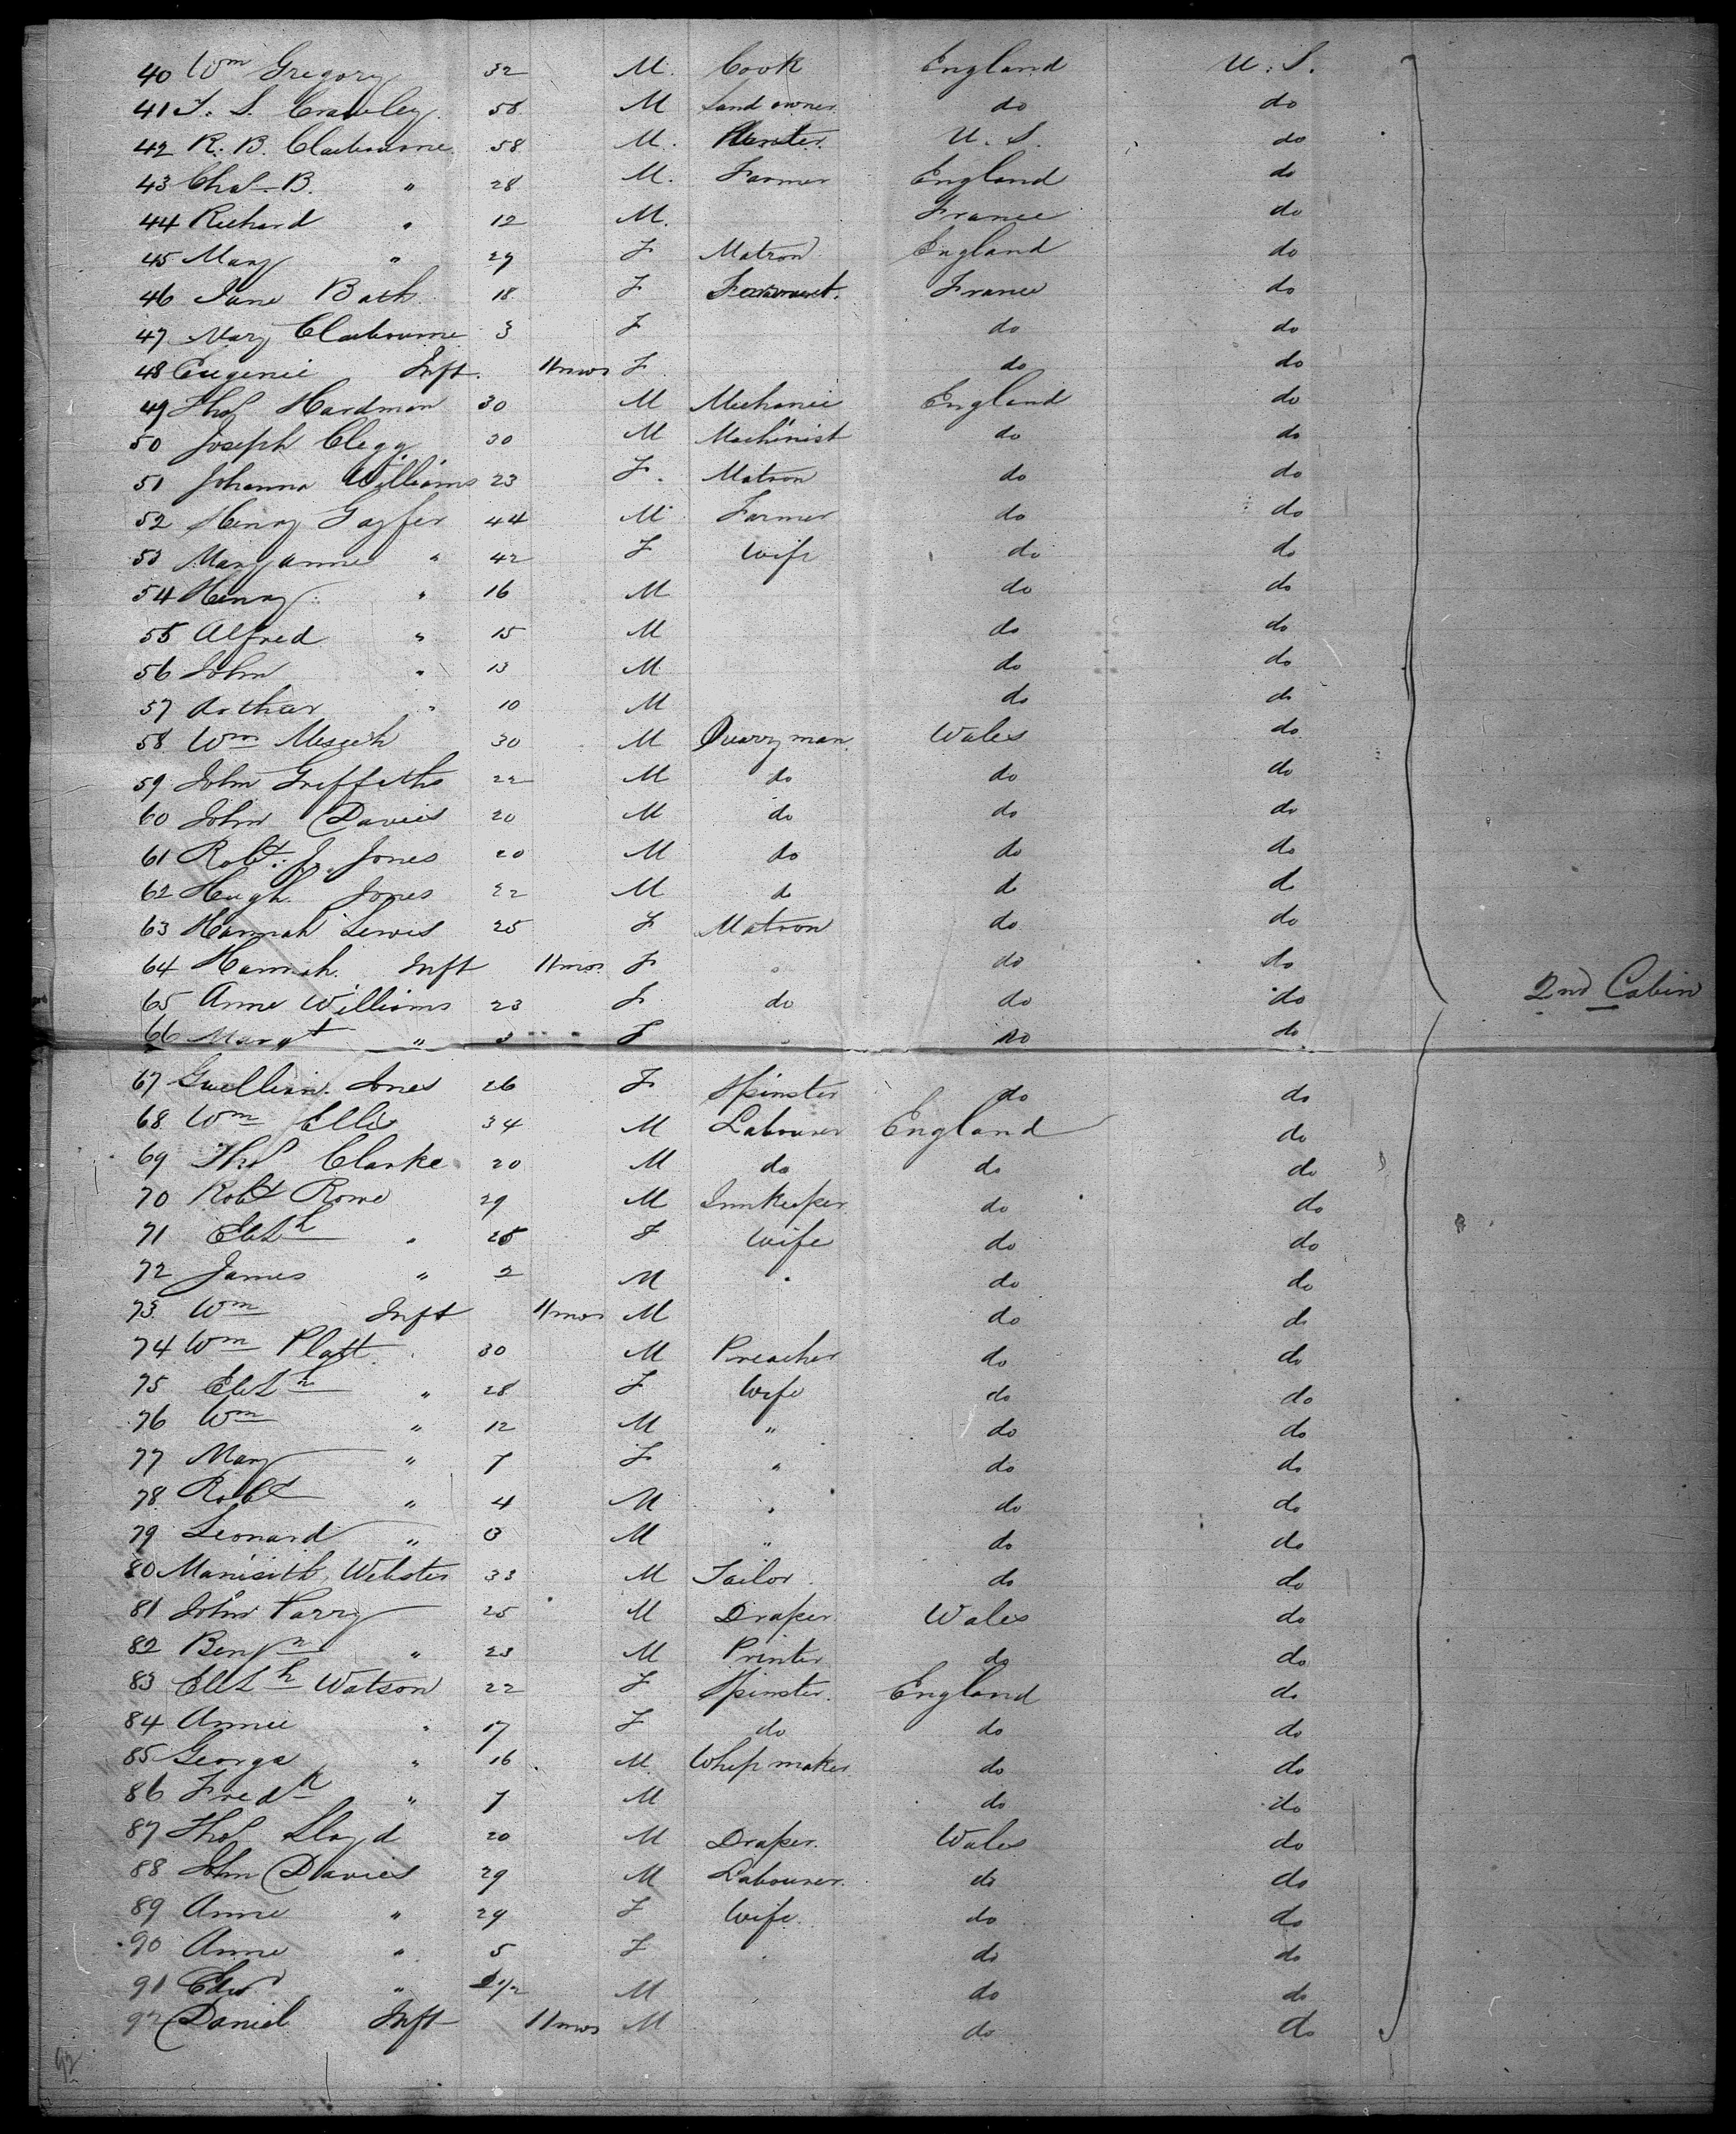 40 Wm Gregory 32 M. Cook England U. S.
41 T. S. Crawley. 58 M Land owner do do
42 R. B. Claibourne 58 M. Planter U. S. do
43 Chas. B. " 28 M. Farmer England do
44 Richard " 12 M. France do
45 Mary " 29 F Matron England do
46 Jane 18 F France do
47 Mary Claibourne 3 F do do
48 Eugenie Inft. 11 mos F do do
49 Thos Hardman 30 M Mechanic England do
50 Joseph Clegg 30 M Machinist do do
51 Johanna Williams 23 F. Matron do do
52 Henry Gayfer 44 M Farmer do do
53 Maryanne " 42 F Wife do do
54 Henry " 16 M do do
55 Alfred " 15 M do do
56 John " 13 M do do
57 Arthur " 10 M do do
58 Wm 30 M Quarryman Wales do
59 John Griffiths 22 M do do do
60 John Davies 20 M do do do
61 Robt. Jones 20 M do do do
62 Hugh Jones 22 M do do do
63 Hannah Lewis 25 F Matron do do
64 Hannah. Inft 11 mos F " do do
65 Anne Williams 23 F do do do
2nd Cabin
66 Margt " 3 F " do do
67 Jones 26 F Spinster do do
68 Wm Ellis 34 M Labourer England do
69 Thos Clarke 20 M do do do
70 Robt Rowe 29 M Innkeeper do do
71 Elizth " 25 F Wife do do
72 James " 2 M " do do
73 Wm Inft 11 mos M do do
74 Wm Platt 30 M Preacher do do
75 Elizth " 28 F Wife do do
76 Wm " 12 M " do do
77 Mary " 7 F " do do
78 Robt " 4 M " do do
79 Leonard " 3 M " do do
80 Webster 33 M Tailor do do
81 John Parry 25 M Draper Wales do
82 Benjn " 23 M Printer do do
83 Elizth Watson 22 F Spinster. England do
84 Annie " 17 F do do do
85 George " 16 M Whip maker do do
86 Fredk " 7 M do do
87 Thos Lloyd 20 M Draper. Wales do
88 John Davies 29 M Labourer. do do
89 Anne " 29 F Wife. do do
90 Anne " 5 F do do
91 Edw " 2 1/2 M do do
92 Daniel Inft 11 mos M do do
92